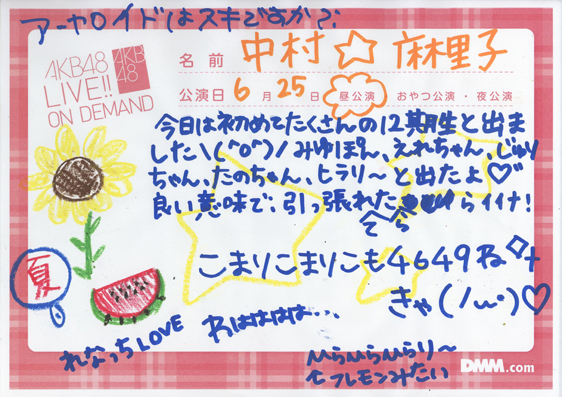 アーヤロイドはスキですか?
AKB48
LIVE!!
ON DEMAND
AKB
48
名前 中村☆麻里子
公演日 6月25日 昼公演 おやつ公演・夜公演
今日は初めてたくさんの12期生と出ま
した\(^o^)/みゆぽん、えれちゃん、じゅり
ちゃん、たのちゃん、ヒラリ〜と出たよ♡
良い意味で、引っ張れたらイイナ!
てら
こまりこまりこも4649ね
きゃ(/ω・)♡
夏
れなっちLOVE
わははははは…
ひらひらひらり〜
↑フレモンみたい
DMM.com